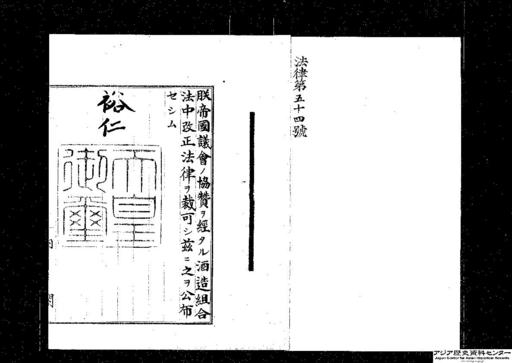 法律第五十四號
朕帝國議會ノ協贊ヲ經タル酒造組合
法中改正法律ヲ裁可シ茲ニ之ヲ公布
セシム
裕仁
天皇
御璽
内閣
アジア歴史資料センター
Japan Center for Asian Historical Records